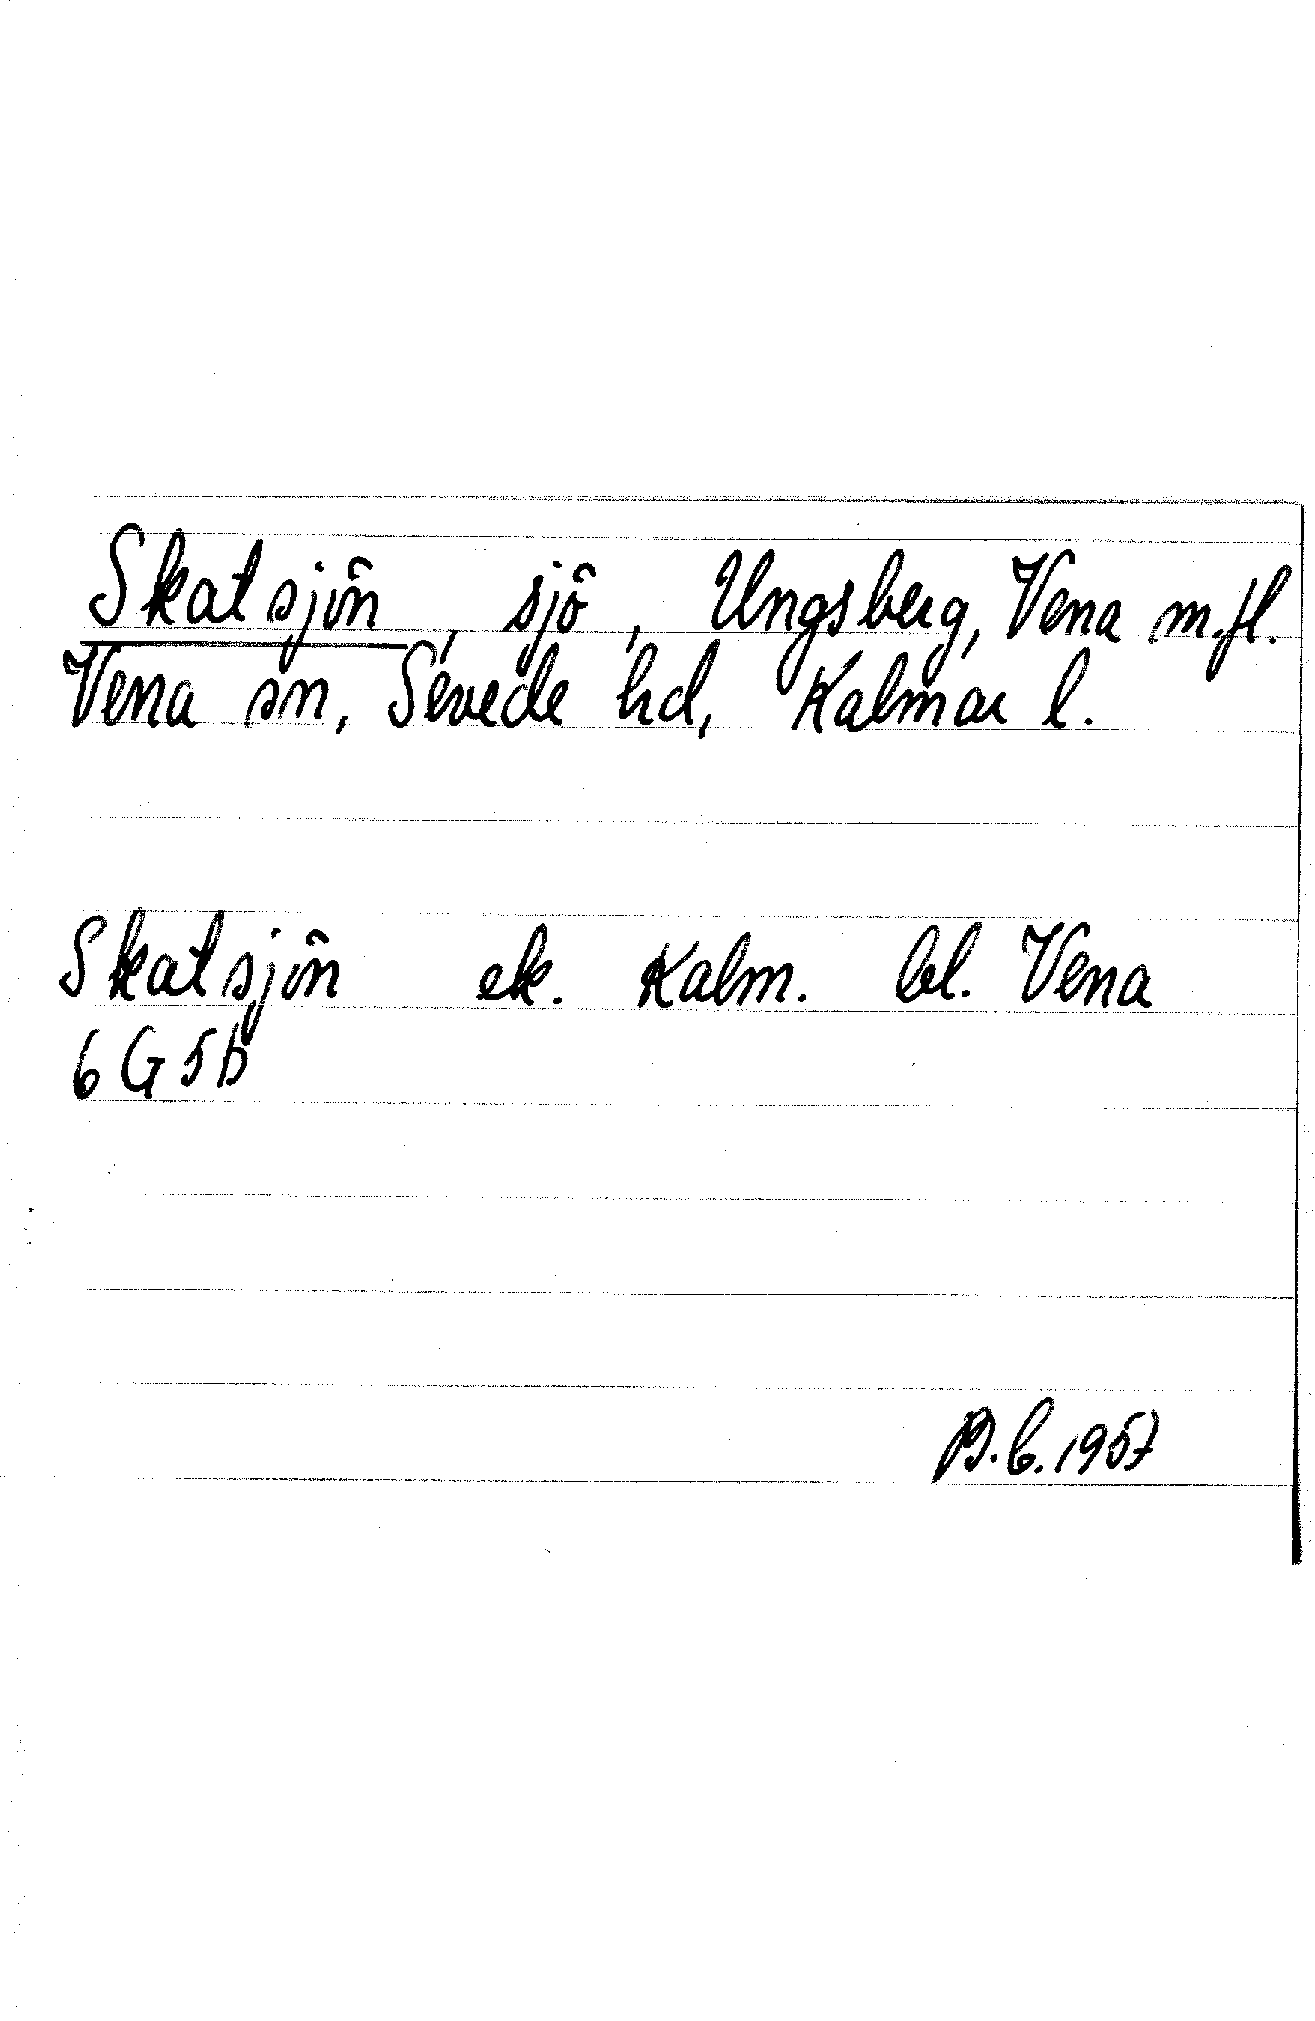 Skatsjön, sjö, Ungsberg, Vena m.fl.
Vena sn, Sevede hd, Kalmar l.
Skatsjön ek. Kalm. bl. Vena
6 G 5 b
B.C. 1957